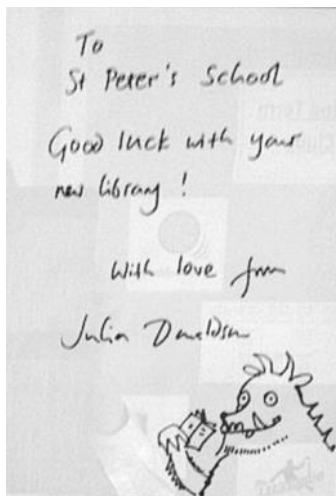 To
St Peter's School
Good luck with your
new library!
With love from
Julia Donaldson